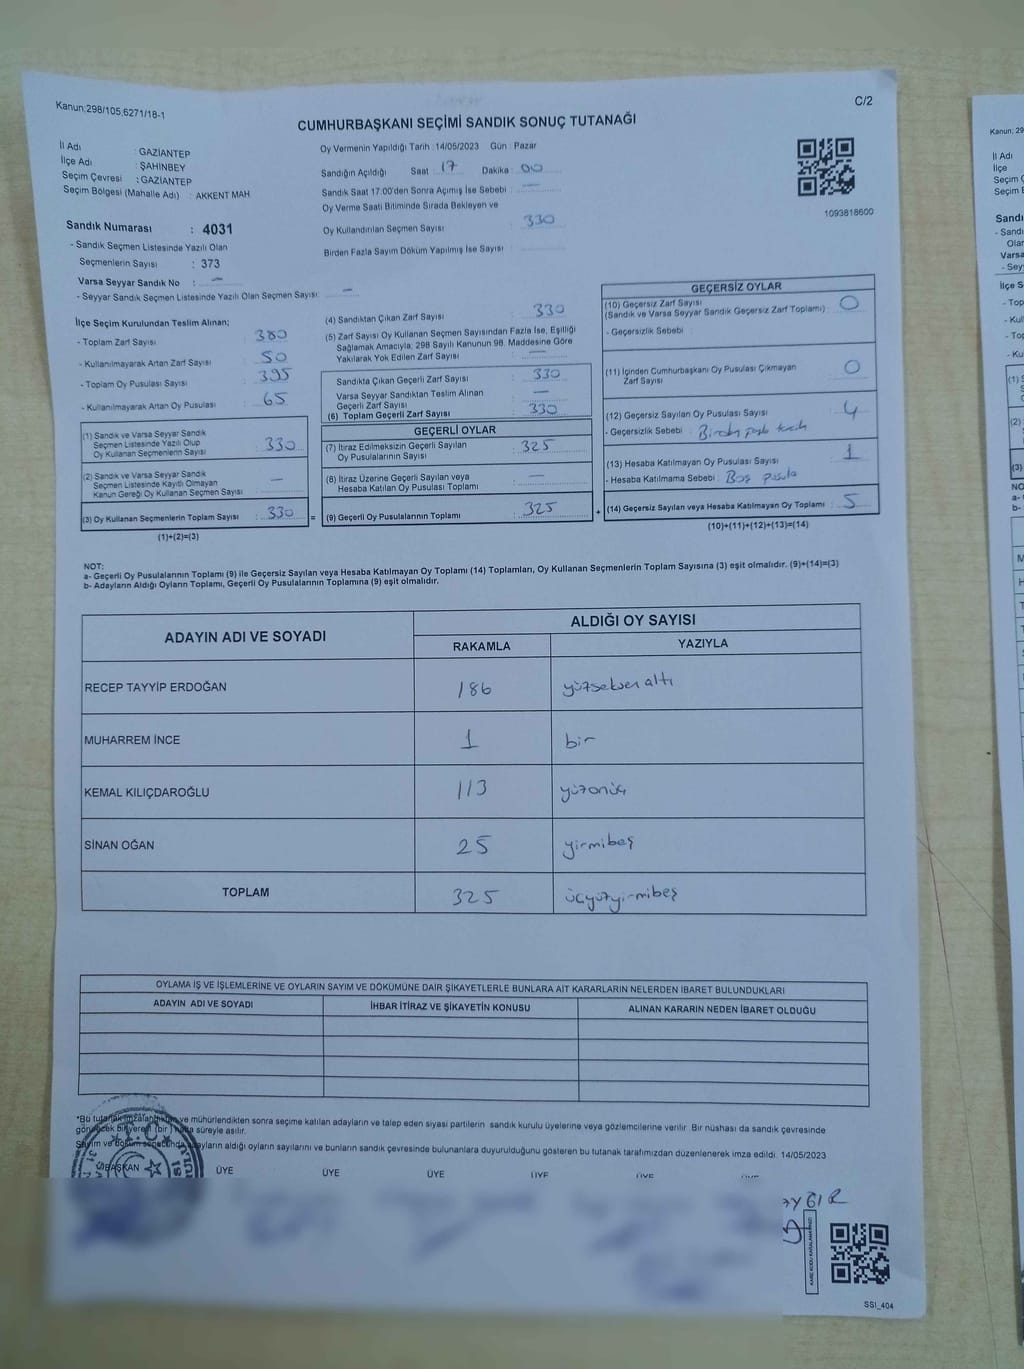 Kanun:298/105,6271/18-1
C/2
CUMHURBAŞKANI SEÇİMİ SANDIK SONUÇ TUTANAĞI
İl Adı : GAZİANTEP
İlçe Adı : ŞAHİNBEY
Seçim Çevresi : GAZİANTEP
Seçim Bölgesi (Mahalle Adı) : AKKENT MAH
Oy Vermenin Yapıldığı Tarih :14/05/2023 Gün : Pazar
Sandığın Açıldığı Saat : 17 Dakika : 00
Sandık Saat 17:00'den Sonra Açımış İse Sebebi : —
Oy Verme Saati Bitiminde Sırada Bekleyen ve
Oy Kullandırılan Seçmen Sayısı : 330
Birden Fazla Sayım Döküm Yapılmış İse Sayısı :
1093818600
Sandık Numarası : 4031
- Sandık Seçmen Listesinde Yazılı Olan
Seçmenlerin Sayısı : 373
Varsa Seyyar Sandık No : —
- Seyyar Sandık Seçmen Listesinde Yazılı Olan Seçmen Sayısı: —
İlçe Seçim Kurulundan Teslim Alınan;
- Toplam Zarf Sayısı : 380
- Kullanılmayarak Artan Zarf Sayısı : 50
- Toplam Oy Pusulası Sayısı : 395
- Kullanılmayarak Artan Oy Pusulası : 65
(1) Sandık ve Varsa Seyyar Sandık
Seçmen Listesinde Yazılı Olup
Oy Kullanan Seçmenlerin Sayısı : 330
(2) Sandık ve Varsa Seyyar Sandık
Seçmen Listesinde Kayıtlı Olmayan
Kanun Gereği Oy Kullanan Seçmen Sayısı : —
(3) Oy Kullanan Seçmenlerin Toplam Sayısı : 330
(1)+(2)=(3)
(4) Sandıktan Çıkan Zarf Sayısı : 330
(5) Zarf Sayısı Oy Kullanan Seçmen Sayısından Fazla İse, Eşitliği
Sağlamak Amacıyla; 298 Sayılı Kanunun 98. Maddesine Göre
Yakılarak Yok Edilen Zarf Sayısı : —
Sandıkta Çıkan Geçerli Zarf Sayısı : 330
Varsa Seyyar Sandıktan Teslim Alınan
Geçerli Zarf Sayısı : —
(6) Toplam Geçerli Zarf Sayısı : 330
GEÇERLİ OYLAR
(7) İtiraz Edilmeksizin Geçerli Sayılan
Oy Pusulalarının Sayısı : 325
(8) İtiraz Üzerine Geçerli Sayılan veya
Hesaba Katılan Oy Pusulası Toplamı : —
(9) Geçerli Oy Pusulalarının Toplamı : 325
GEÇERSİZ OYLAR
(10) Geçersiz Zarf Sayısı
(Sandık ve Varsa Seyyar Sandık Geçersiz Zarf Toplamı) : 0
- Geçersizlik Sebebi :
(11) İçinden Cumhurbaşkanı Oy Pusulası Çıkmayan
Zarf Sayısı : 0
(12) Geçersiz Sayılan Oy Pusulası Sayısı : 4
- Geçersizlik Sebebi :
(13) Hesaba Katılmayan Oy Pusulası Sayısı : 1
- Hesaba Katılmama Sebebi : Boş pusula
(14) Geçersiz Sayılan veya Hesaba Katılmayan Oy Toplamı : 5
(10)+(11)+(12)+(13)=(14)
NOT:
a- Geçerli Oy Pusulalarının Toplamı (9) ile Geçersiz Sayılan veya Hesaba Katılmayan Oy Toplamı (14) Toplamları, Oy Kullanan Seçmenlerin Toplam Sayısına (3) eşit olmalıdır. (9)+(14)=(3)
b- Adayların Aldığı Oyların Toplamı, Geçerli Oy Pusulalarının Toplamına (9) eşit olmalıdır.
ADAYIN ADI VE SOYADI
ALDIĞI OY SAYISI
RAKAMLA YAZIYLA
RECEP TAYYİP ERDOĞAN 186 yüzseksenaltı
MUHARREM İNCE 1 bir
KEMAL KILIÇDAROĞLU 113 yüzonüç
SİNAN OĞAN 25 yirmibeş
TOPLAM 325 üçyüzyirmibeş
OYLAMA İŞ VE İŞLEMLERİNE VE OYLARIN SAYIM VE DÖKÜMÜNE DAİR ŞİKAYETLERLE BUNLARA AİT KARARLARIN NELERDEN İBARET BULUNDUKLARI
ADAYIN ADI VE SOYADI İHBAR İTİRAZ VE ŞİKAYETİN KONUSU ALINAN KARARIN NEDEN İBARET OLDUĞU
*Bu tutanak imzalandıktan ve mühürlendikten sonra seçime katılan adayların ve talep eden siyasi partilerin sandık kurulu üyelerine veya gözlemcilerine verilir. Bir nüshası da sandık çevresinde
görülecek bir yere (bir) hafta süreyle asılır.
Sayım ve döküm sonucunda adayların aldığı oyların sayılarını ve bunların sandık çevresinde bulunanlara duyurulduğunu gösteren bu tutanak tarafımızdan düzenlenerek imza edildi. 14/05/2023
BAŞKAN ÜYE ÜYE ÜYE ÜYE ÜYE
T.C.
SSİ_404
Kanun: 29
İl Adı
İlçe
Seçim Ç
Seçim
Sandı